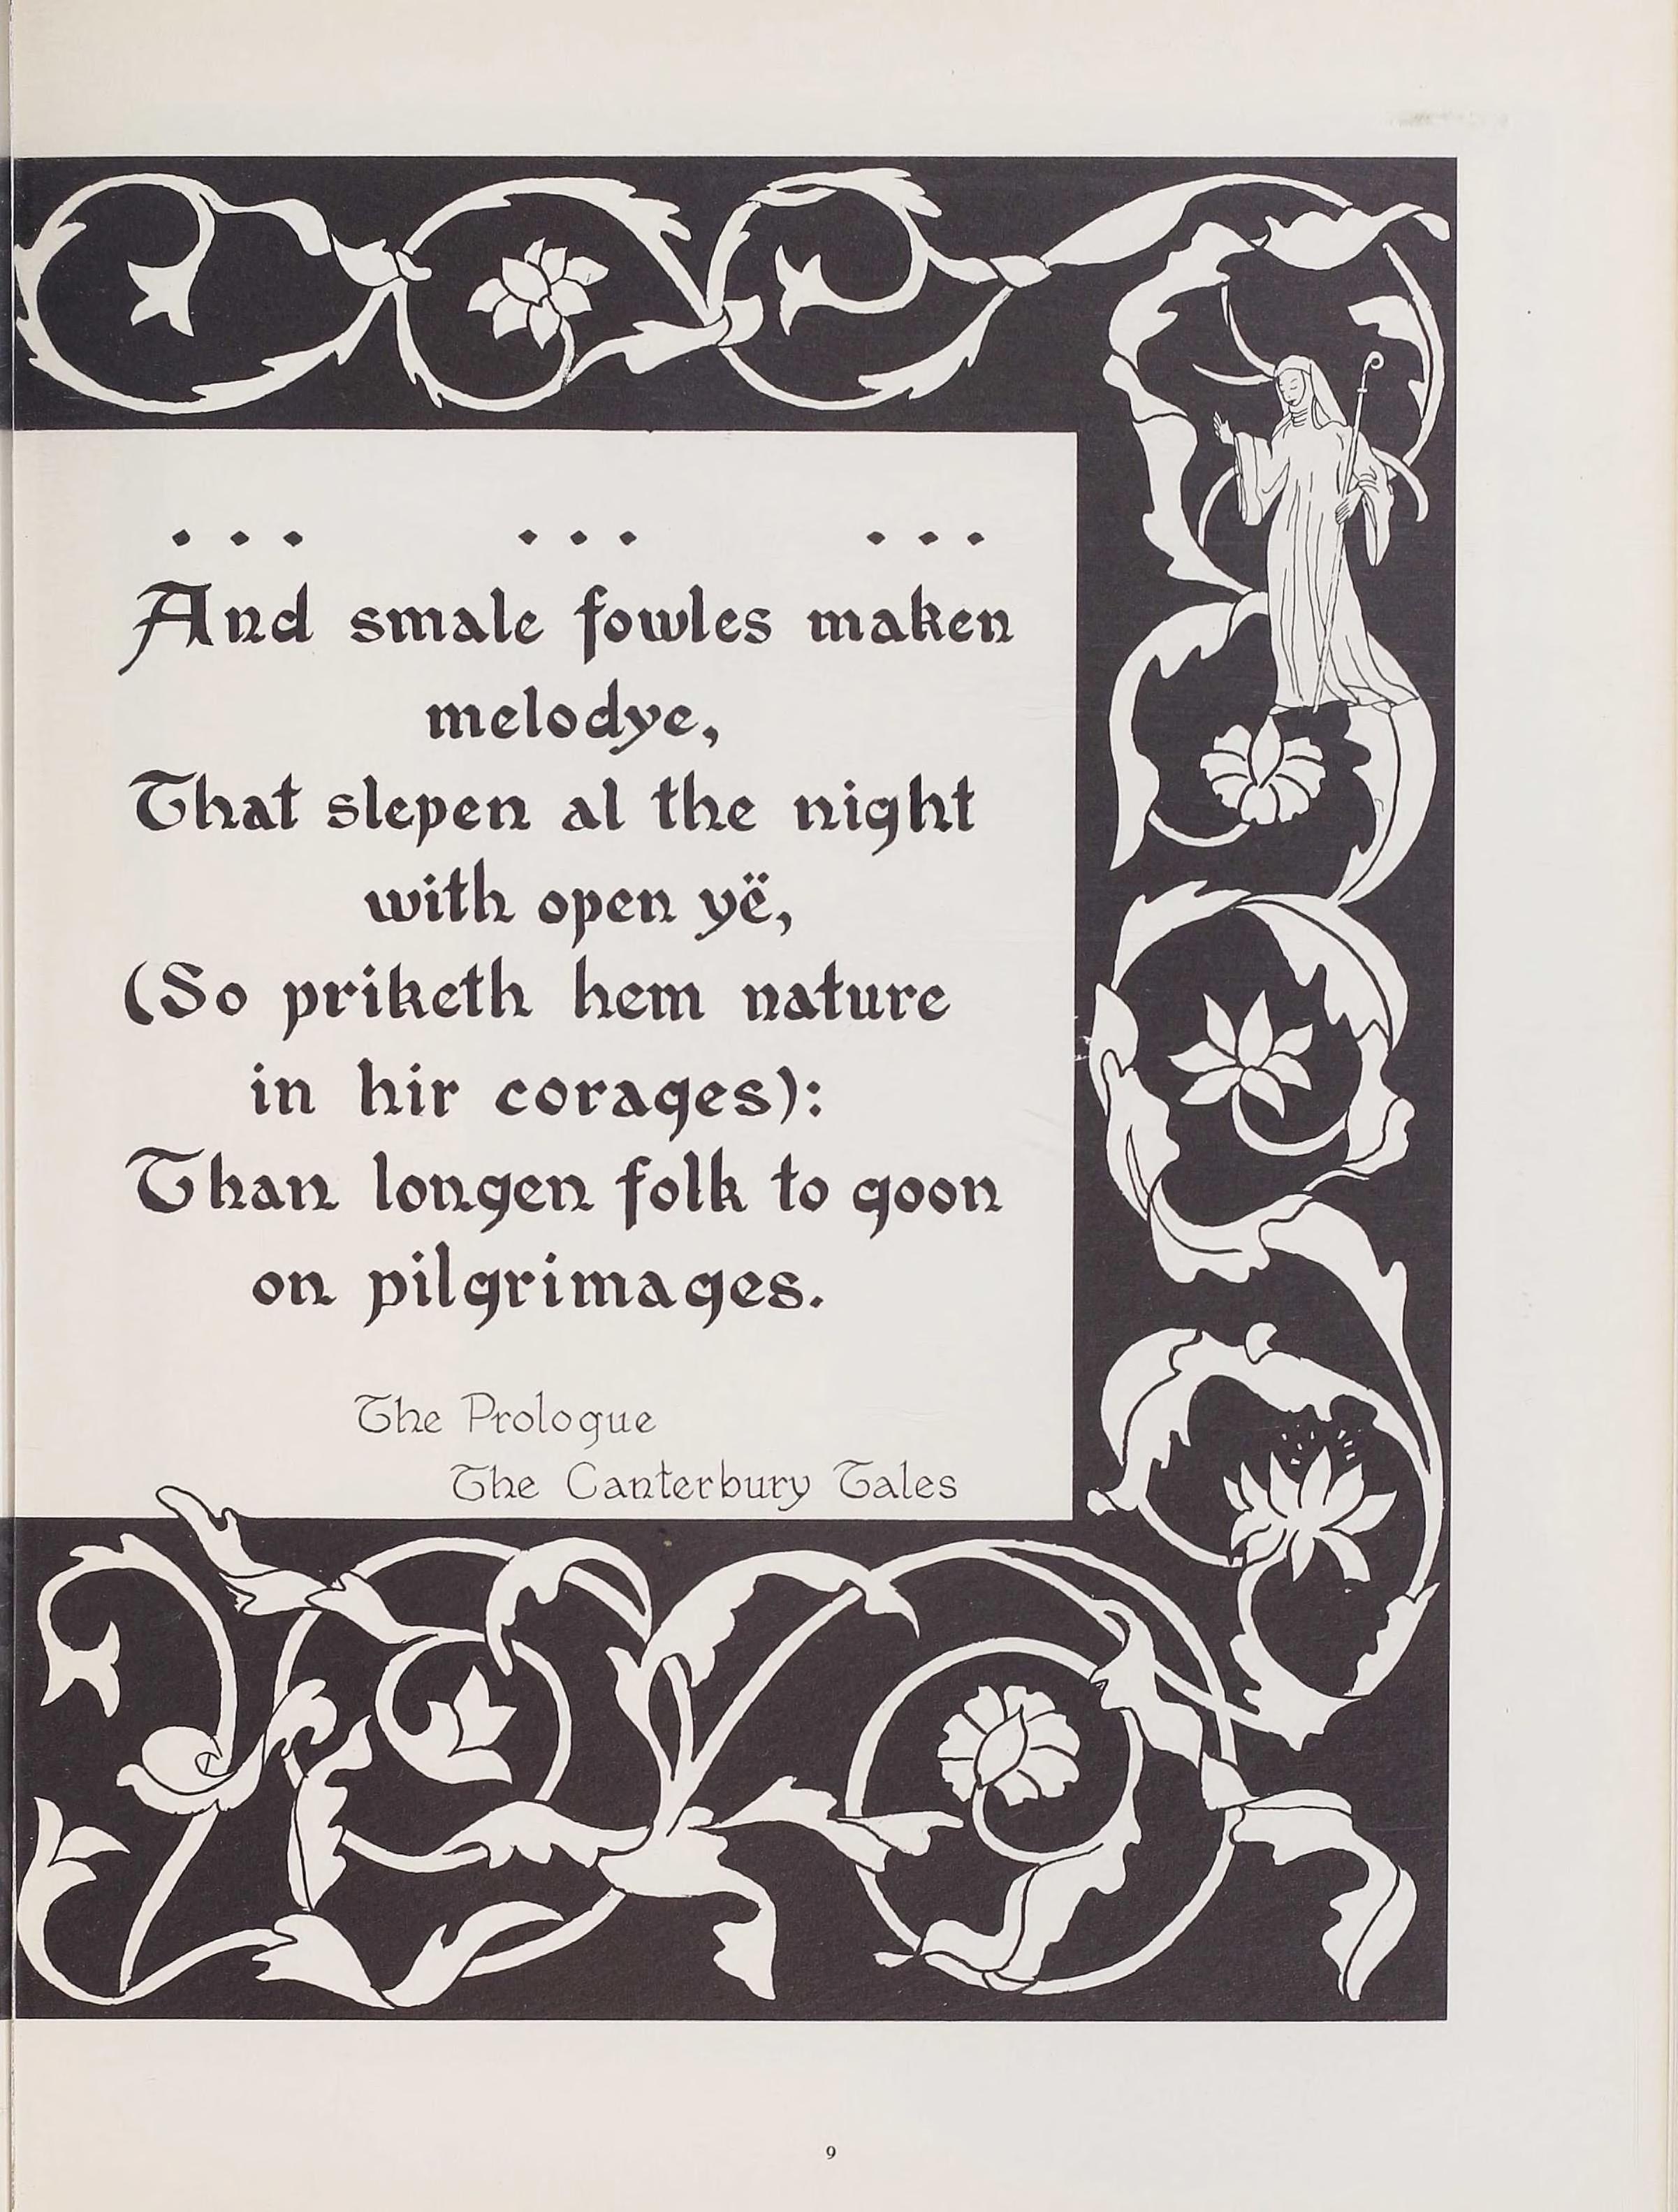 ... ... ...
And smale fowles maken
melodye,
That slepen al the night
with open yë,
(So priketh hem nature
in hir corages):
Than longen folk to goon
on pilgrimages.
The Prologue
The Canterbury Tales
9